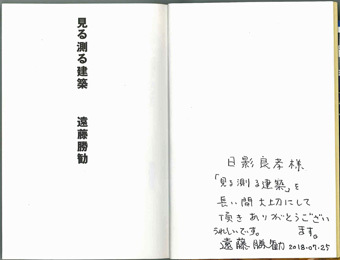 見る測る建築　遠藤勝勧
日影良孝様
「見る測る建築」を
長い間大切にして
頂きありがとうござい
うれしいです。　ます。
遠藤勝勧 2018-07-25